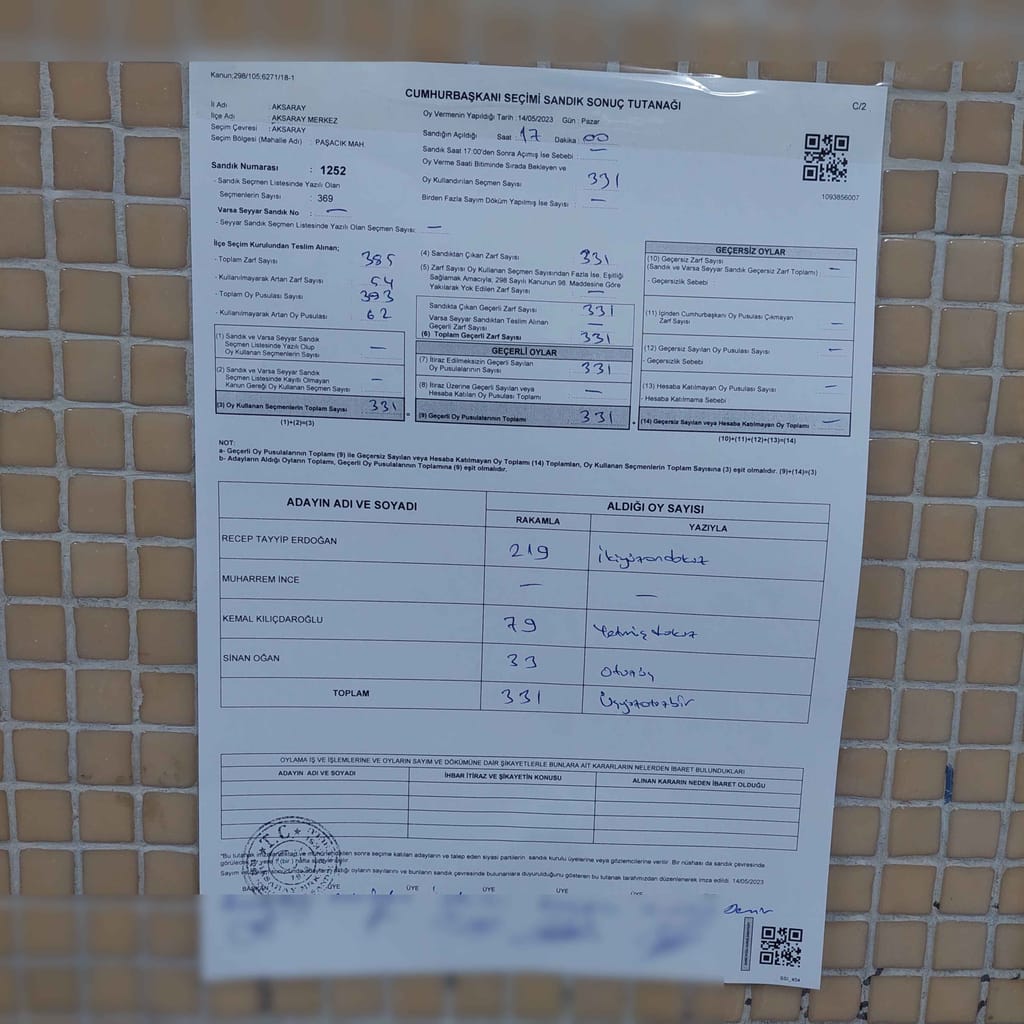 Kanun;298/105;6271/18-1
CUMHURBAŞKANI SEÇİMİ SANDIK SONUÇ TUTANAĞI
C/2
İl Adı : AKSARAY
İlçe Adı : AKSARAY MERKEZ
Seçim Çevresi : AKSARAY
Seçim Bölgesi (Mahalle Adı) : PAŞACIK MAH
Sandık Numarası : 1252
- Sandık Seçmen Listesinde Yazılı Olan
Seçmenlerin Sayısı : 369
Varsa Seyyar Sandık No : —
- Seyyar Sandık Seçmen Listesinde Yazılı Olan Seçmen Sayısı: —
Oy Vermenin Yapıldığı Tarih : 14/05/2023 Gün : Pazar
Sandığın Açıldığı Saat : 17 Dakika : 00
Sandık Saat 17:00'den Sonra Açımış İse Sebebi : —
Oy Verme Saati Bitiminde Sırada Bekleyen ve
Oy Kullandırılan Seçmen Sayısı 331
Birden Fazla Sayım Döküm Yapılmış İse Sayısı : —
1093856007
İlçe Seçim Kurulundan Teslim Alınan;
- Toplam Zarf Sayısı 385
- Kullanılmayarak Artan Zarf Sayısı : 54
- Toplam Oy Pusulası Sayısı 393
- Kullanılmayarak Artan Oy Pusulası : 62
(1) Sandık ve Varsa Seyyar Sandık
Seçmen Listesinde Yazılı Olup
Oy Kullanan Seçmenlerin Sayısı —
(2) Sandık ve Varsa Seyyar Sandık
Seçmen Listesinde Kayıtlı Olmayan
Kanun Gereği Oy Kullanan Seçmen Sayısı —
(3) Oy Kullanan Seçmenlerin Toplam Sayısı 331
(1)+(2)=(3)
=
(4) Sandıktan Çıkan Zarf Sayısı : 331
(5) Zarf Sayısı Oy Kullanan Seçmen Sayısından Fazla İse, Eşitliği
Sağlamak Amacıyla; 298 Sayılı Kanunun 98. Maddesine Göre
Yakılarak Yok Edilen Zarf Sayısı —
Sandıkta Çıkan Geçerli Zarf Sayısı 331
Varsa Seyyar Sandıktan Teslim Alınan
Geçerli Zarf Sayısı —
(6) Toplam Geçerli Zarf Sayısı 331
GEÇERLİ OYLAR
(7) İtiraz Edilmeksizin Geçerli Sayılan
Oy Pusulalarının Sayısı 331
(8) İtiraz Üzerine Geçerli Sayılan veya
Hesaba Katılan Oy Pusulası Toplamı —
(9) Geçerli Oy Pusulalarının Toplamı 331
+
GEÇERSİZ OYLAR
(10) Geçersiz Zarf Sayısı
(Sandık ve Varsa Seyyar Sandık Geçersiz Zarf Toplamı) —
- Geçersizlik Sebebi :
(11) İçinden Cumhurbaşkanı Oy Pusulası Çıkmayan
Zarf Sayısı —
(12) Geçersiz Sayılan Oy Pusulası Sayısı —
- Geçersizlik Sebebi
(13) Hesaba Katılmayan Oy Pusulası Sayısı —
- Hesaba Katılmama Sebebi
(14) Geçersiz Sayılan veya Hesaba Katılmayan Oy Toplamı —
(10)+(11)+(12)+(13)=(14)
NOT:
a- Geçerli Oy Pusulalarının Toplamı (9) ile Geçersiz Sayılan veya Hesaba Katılmayan Oy Toplamı (14) Toplamları, Oy Kullanan Seçmenlerin Toplam Sayısına (3) eşit olmalıdır. (9)+(14)=(3)
b- Adayların Aldığı Oyların Toplamı, Geçerli Oy Pusulalarının Toplamına (9) eşit olmalıdır.
ADAYIN ADI VE SOYADI ALDIĞI OY SAYISI
RAKAMLA YAZIYLA
RECEP TAYYİP ERDOĞAN 219 ikiyüzondokuz
MUHARREM İNCE — —
KEMAL KILIÇDAROĞLU 79 Yetmiş dokuz
SİNAN OĞAN 33 Otuzüç
TOPLAM 331 Üçyüzotuzbir
OYLAMA İŞ VE İŞLEMLERİNE VE OYLARIN SAYIM VE DÖKÜMÜNE DAİR ŞİKAYETLERLE BUNLARA AİT KARARLARIN NELERDEN İBARET BULUNDUKLARI
ADAYIN ADI VE SOYADI İHBAR İTİRAZ VE ŞİKAYETİN KONUSU ALINAN KARARIN NEDEN İBARET OLDUĞU
T.C.
*Bu tutanak sonra seçime katılan adayların ve talep eden siyasi partilerin sandık kurulu üyelerine veya gözlemcilerine verilir. Bir nüshası da sandık çevresinde
görülecek bir yere 7 (bir) hafta
Sayım aldığı oyların sayılarını ve bunların sandık çevresinde bulunanlara duyurulduğunu gösteren bu tutanak tarafımızdan düzenlenerek imza edildi. 14/05/2023
BAŞKAN ÜYE ÜYE ÜYE ÜYE ÜYE